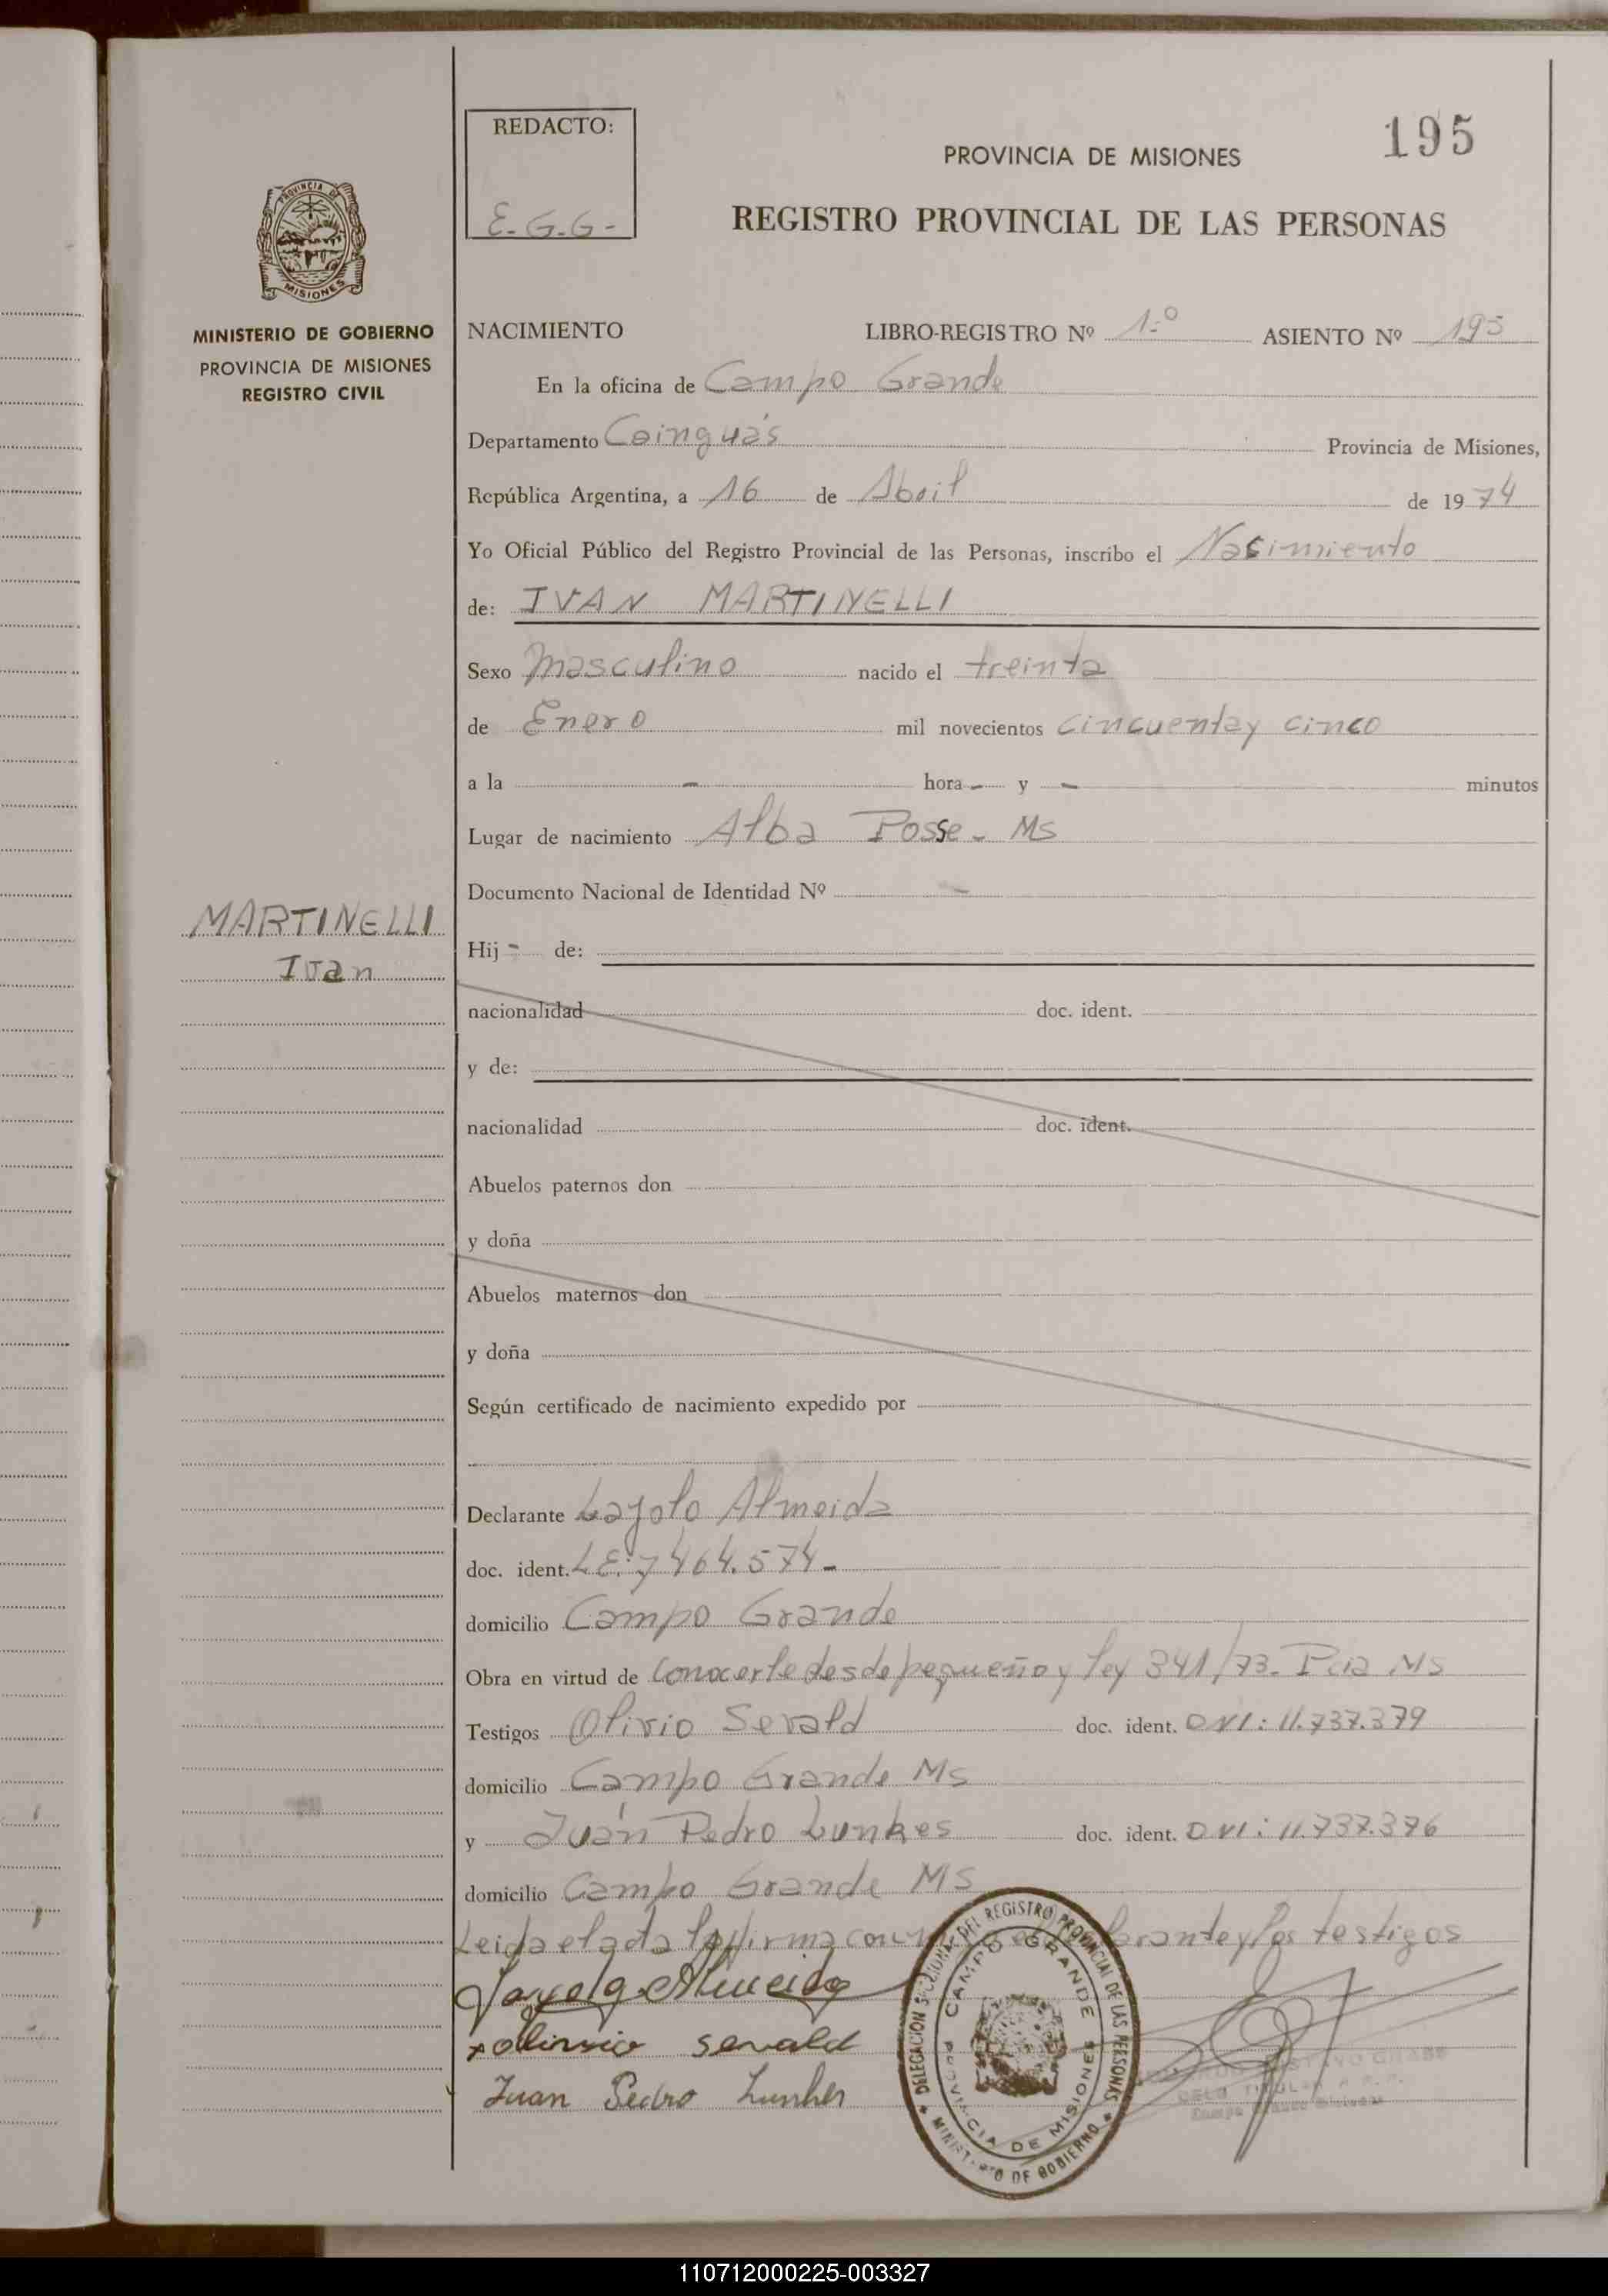 195
REDACTO:
E.G.G-
PROVINCIA DE MISIONES
REGISTRO PROVINCIAL DE LAS PERSONAS
PROVINCIA DE
MISIONES
MINISTERIO DE GOBIERNO
PROVINCIA DE MISIONES
REGISTRO CIVIL
NACIMIENTO LIBRO-REGISTRO Nº 1º ASIENTO Nº 195
En la oficina de Campo Grande
Departamento Cainguás Provincia de Misiones,
República Argentina, a 16 de Abril de 1974
Yo Oficial Público del Registro Provincial de las Personas, inscribo el Nacimiento
de: IVAN MARTINELLI
Sexo Masculino nacido el treinta
de Enero mil novecientos cincuenta y cinco
a la - hora - y - minutos
Lugar de nacimiento Alba Posse - Ms
Documento Nacional de Identidad Nº -
MARTINELLI
Ivan
Hij - de:
nacionalidad doc. ident.
y de:
nacionalidad doc. ident.
Abuelos paternos don
y doña
Abuelos maternos don
y doña
Según certificado de nacimiento expedido por
Declarante Layolo Almeida
doc. ident. L.E: 7464.574-
domicilio Campo Grande
Obra en virtud de conocerle desde pequeño y ley 341/73. Pcia Ms
Testigos Olivio Sevald doc. ident. DNI: 11.737.379
domicilio Campo Grande Ms
y Juán Pedro Lunkes doc. ident. DNI: 11.737.376
domicilio Campo Grande MS
Leida el acta la firma los testigos
Almeida
x olivio sevald
Juan Pedro Lunkes
DELEGACION DEL REGISTRO PROVINCIAL DE LAS PERSONAS
CAMPO GRANDE
PROVINCIA DE MISIONES
MINISTERIO DE GOBIERNO
110712000225-003327